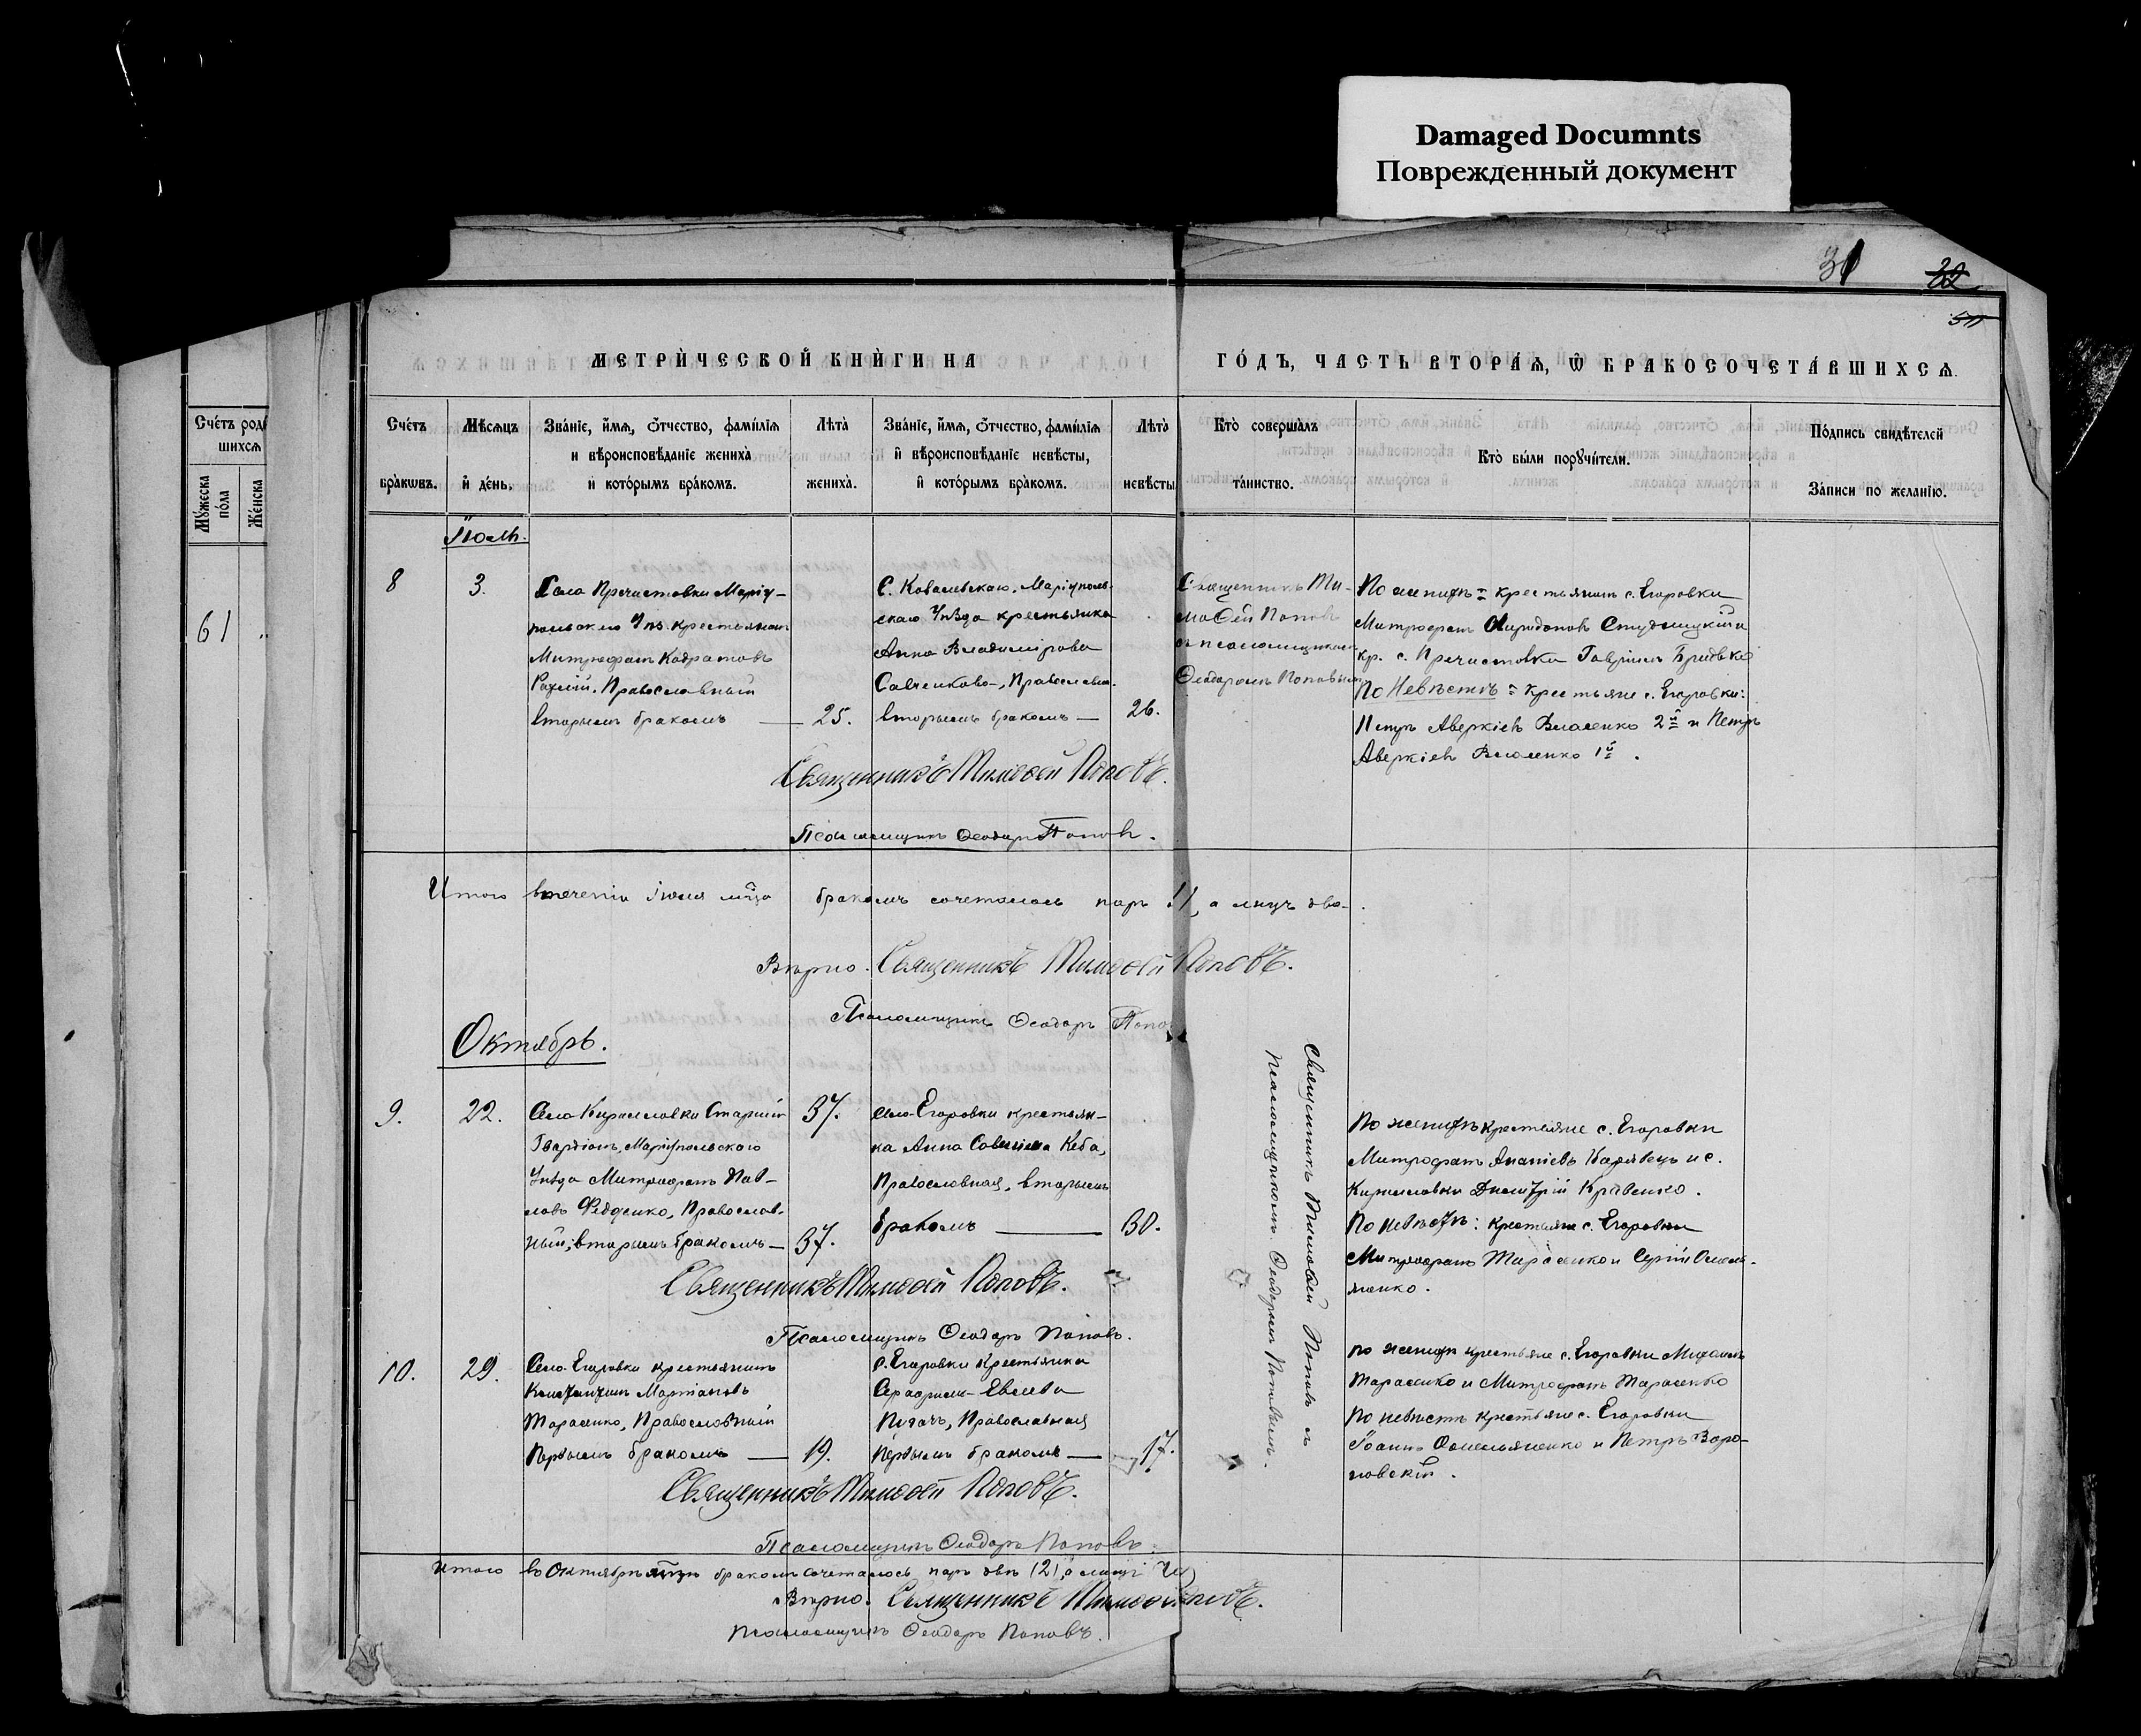 Damaged Documnts
Поврежденный документ
31
22
МЕТРИ́ЧЕСКОЙ КНИ́ГИ НА
ГО́ДЪ, ЧАСТЬ ВТОРА́Я, Ѿ БРАКОСОЧЕТА́ВШИХСЯ.
Сче́тъ роди
шихся
Мꙋ́жеска по́ла
Же́нска
61
Сче́тъ бра́кѡвъ.
Мѣ́сяцъ и҆ де́нь.
Зва́нїе, и҆́мя, ѻ҆́тчество, фами́лїя
и вѣроисповѣ́данїе жениха̀
и кото́рымъ бра́комъ.
Лѣта̀ жениха̀.
Зва́нїе, и҆́мя, ѻ҆́тчество, фами́лїя
и҆ вѣроисповѣ́данїе невѣ́сты,
и҆ кото́рымъ бра́комъ.
Лѣта̀ невѣ́сты
Кто̀ соверша́лъ та́инство.
Кто̀ бы́ли порꙋчи́тели.
По́дпись свидѣ́телей
За́писи по жела́нїю.
Іюль.
8
3.
Села Пречистовки Маріу-
польскаго Уѣз. крестьянинъ
Митрофанъ Кодратовъ
Православный
вторымъ бракомъ — 25.
С. Ковалевскаго, Маріуполь-
скаго Уѣзда крестьянка
Анна Владимірова
Савченкова, Православн.
вторымъ бракомъ — 26.
Священникъ Ти-
моѳей Поповъ
съ псаломщикомъ
Ѳеодоромъ Поповымъ
По женихѣ: крестьянинъ с. Егоровки
Митрофанъ
кр. с. Пречистовки Гавріилъ
По Невѣстѣ: крестьяне с. Егоровки:
Петръ Аверкіевъ Власенко 2й и Петръ
Аверкіевъ Власенко 1й.
Священникъ Тимоѳей Поповъ.
Псаломщикъ Ѳеодоръ Поповъ.
Итого втеченіи Іюля мца бракомъ сочеталось паръ 1, а лицъ два.
Вѣрно. Священникъ Тимоѳей Поповъ.
Псаломщикъ Ѳеодоръ Попо
Октябрь.
9.
22.
Села Кирилловки Старшій
Маріупольскаго
Уѣзда Митрофанъ Пав-
ловъ Ѳедоренко, Православ-
ный; вторымъ бракомъ — 37.
37.
села Егоровки крестьян-
ка Анна Савишна
Православная, вторымъ
бракомъ — 30.
Священникъ Тимоѳей Поповъ съ
Псаломщикомъ Ѳеодоромъ Поповымъ.
По женихѣ крестьяне с. Егоровки
Митрофанъ Ананіевъ и с.
Кирилловки Дмитрій Кравченко.
По невѣстѣ: крестьяне с. Егоровки
Митрофанъ Тарасенко и Сергій Омель-
яненко.
Священникъ Тимоѳей Поповъ.
Псаломщикъ Ѳеодоръ Поповъ.
10.
29.
Села Егоровки крестьянинъ
Константинъ Мартіановъ
Тарасенко, Православный
Первымъ бракомъ — 19.
с. Егоровки Крестьянка
Серафима Евсеева
Пугачъ, Православная
первымъ бракомъ — 17.
по женихѣ крестьяне с. Егоровки Михаилъ
Тарасенко и Митрофанъ Тарасенко
по невѣстѣ крестьяне с. Егоровки
Іоаннъ Омельяненко и Петръ Воро-
новскій.
Священникъ Тимоѳей Поповъ.
Псаломщикъ Ѳеодоръ Поповъ.
Итого въ Октябрѣ мцѣ бракомъ сочеталось паръ двѣ (2), а лицъ
Вѣрно. Священникъ Тимоѳей Поповъ.
Псаломщикъ Ѳеодоръ Поповъ.